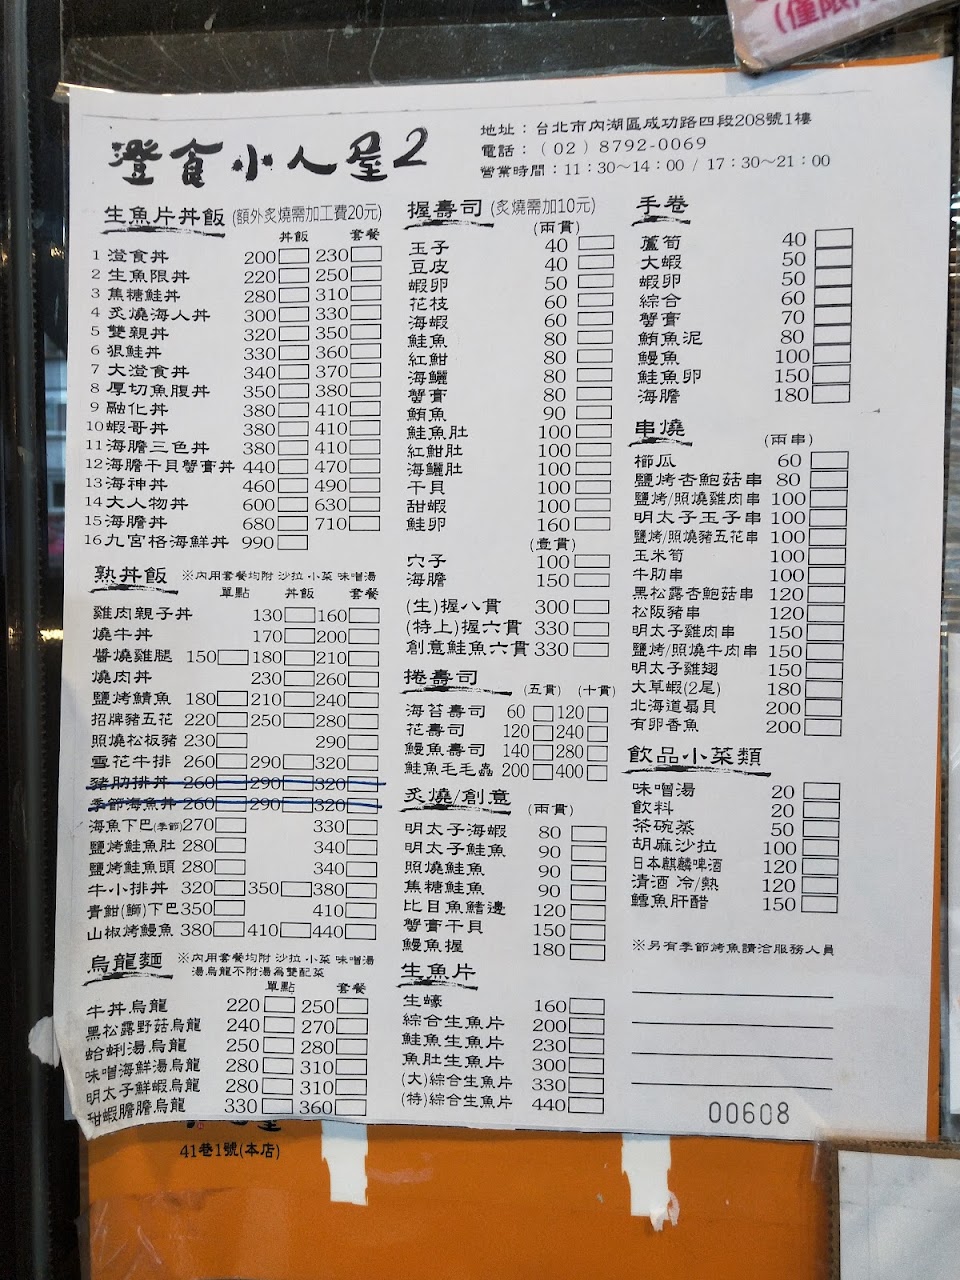 (僅限
澄食小人屋2
地址：台北市內湖區成功路四段208號1樓
電話：（02）8792-0069
營業時間：11：30～14：00 / 17：30～21：00
生魚片丼飯 (額外炙燒需加工費20元)
丼飯 套餐
1 澄食丼 200 230
2 生魚限丼 220 250
3 焦糖鮭丼 280 310
4 炙燒海人丼 300 330
5 雙親丼 320 350
6 狠鮭丼 330 360
7 大澄食丼 340 370
8 厚切魚腹丼 350 380
9 融化丼 380 410
10 蝦哥丼 380 410
11 海膽三色丼 380 410
12 海膽干貝蟹膏丼 440 470
13 海神丼 460 490
14 大人物丼 600 630
15 海膽丼 680 710
16 九宮格海鮮丼 990
熟丼飯 ※內用套餐均附 沙拉 小菜 味噌湯
單點 丼飯 套餐
雞肉親子丼 130 160
燒牛丼 170 200
醬燒雞腿 150 180 210
燒肉丼 230 260
鹽烤鯖魚 180 210 240
招牌豬五花 220 250 280
照燒松板豬 230 290
雪花牛排 260 290 320
豬肋排丼 260 290 320
季節海魚丼 260 290 320
海魚下巴(季節) 270 330
鹽烤鮭魚肚 280 340
鹽烤鮭魚頭 280 340
牛小排丼 320 350 380
青魽(鰤)下巴 350 410
山椒烤鰻魚 380 410 440
烏龍麵 ※內用套餐均附 沙拉 小菜 味噌湯
湯烏龍不附湯為雙配菜
單點 套餐
牛丼.烏龍 220 250
黑松露野菇.烏龍 240 270
蛤蜊湯.烏龍 250 280
味噌海鮮湯.烏龍 280 310
明太子鮮蝦.烏龍 280 310
甜蝦膽膽.烏龍 330 360
握壽司 (炙燒需加10元)
(兩貫)
玉子 40
豆皮 40
蝦卵 50
花枝 60
海蝦 60
鮭魚 80
紅魽 80
海鱺 80
蟹膏 80
鮪魚 90
鮭魚肚 100
紅魽肚 100
海鱺肚 100
干貝 100
甜蝦 100
鮭卵 160
(壹貫)
穴子 100
海膽 150
(生)握八貫 300
(特上)握六貫 330
創意鮭魚六貫 330
捲壽司 (五貫) (十貫)
海苔壽司 60 120
花壽司 120 240
鰻魚壽司 140 280
鮭魚毛毛蟲 200 400
炙燒/創意 (兩貫)
明太子海蝦 80
明太子鮭魚 90
照燒鮭魚 90
焦糖鮭魚 90
比目魚鰭邊 120
蟹膏干貝 150
鰻魚握 180
生魚片
生蠔 160
綜合生魚片 200
鮭魚生魚片 230
魚肚生魚片 300
(大)綜合生魚片 330
(特)綜合生魚片 440
手卷
蘆筍 40
大蝦 50
蝦卵 50
綜合 60
蟹膏 70
鮪魚泥 80
鰻魚 100
鮭魚卵 150
海膽 180
串燒 (兩串)
櫛瓜 60
鹽烤杏鮑菇串 80
鹽烤/照燒雞肉串 100
明太子玉子串 100
鹽烤/照燒豬五花串 100
玉米筍 100
牛肋串 100
黑松露杏鮑菇串 120
松阪豬串 120
明太子雞肉串 150
鹽烤/照燒牛肉串 150
明太子雞翅 150
大草蝦(2尾) 180
北海道扇貝 200
有卵香魚 200
飲品小菜類
味噌湯 20
飲料 20
茶碗蒸 50
胡麻沙拉 100
日本麒麟啤酒 120
清酒 冷/熱 120
鱈魚肝醋 150
※另有季節烤魚請洽服務人員
00608
41巷1號(本店)